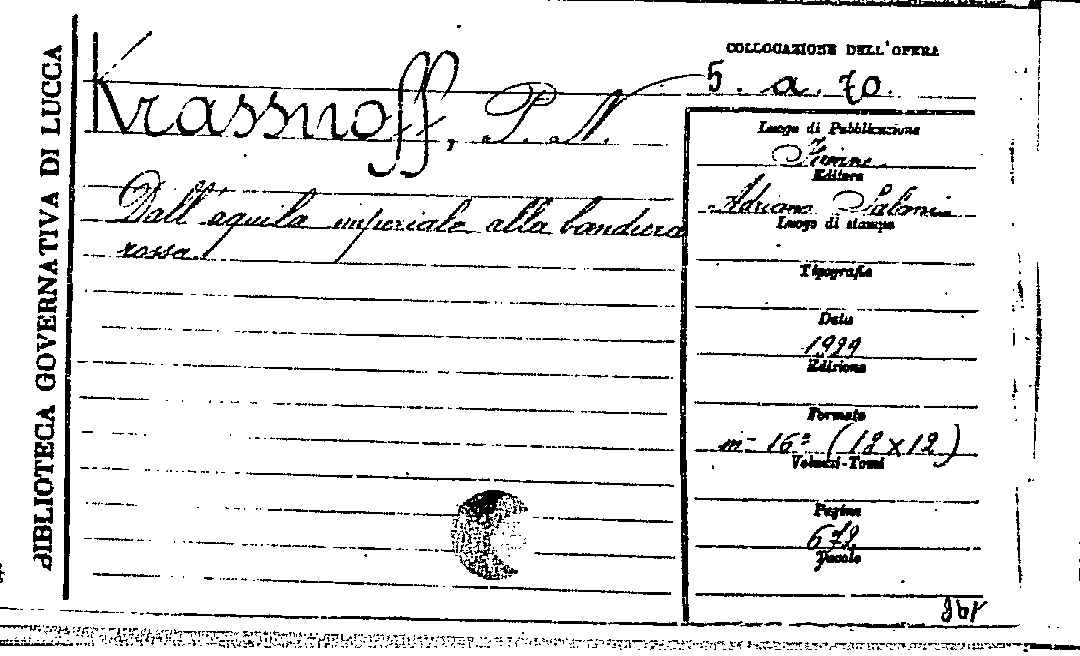 BIBLIOTECA GOVERNATIVA DI LUCCA
Krassnoff, P. N.
Dall'aquila imperiale alla bandiera
rossa.
COLLOCAZIONE DELL'OPERA
5. a. 70.
Luogo di Pubblicazione
Firenze
Editore
Adriano Salani
Luogo di stampa
Tipografia
Data
1929
Edizione
Formato
in- 16° (18x12)
Volumi-Tomi
Pagine
678
Tavole